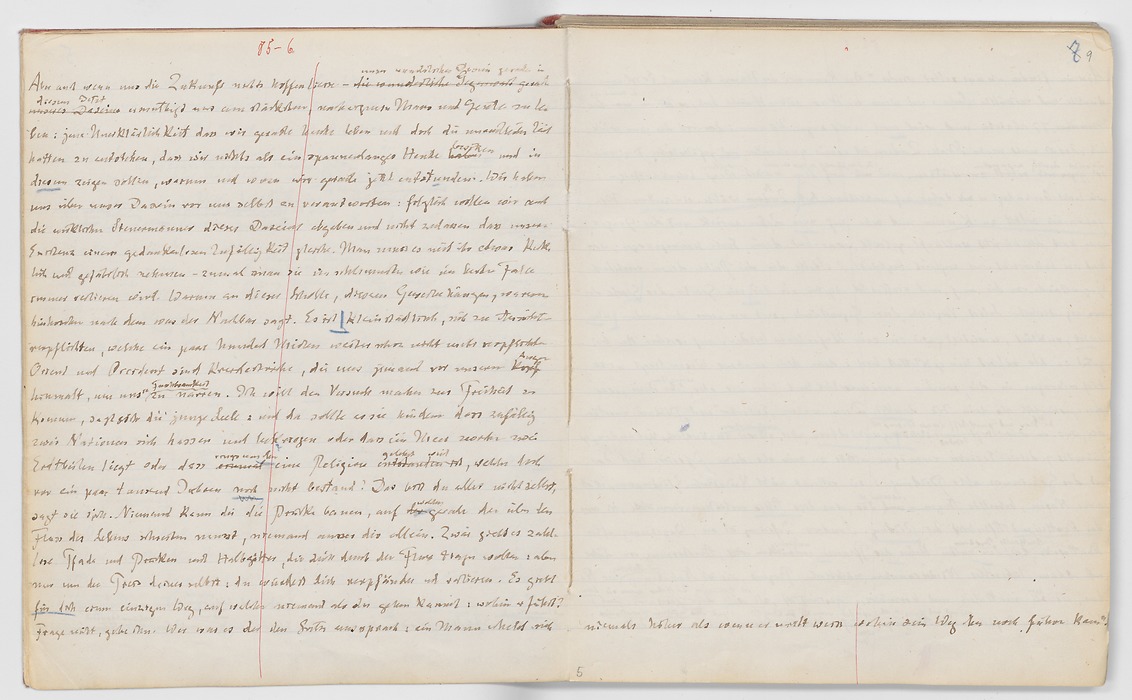 85-6
unser wunderliches Dasein gerade in
Aber auch wenn uns die Zukunft nichts hoffen liesse — die wunderliche Gegenwart gerade
diesem Jetzt
unseres Daseins ermuthigt uns am stärksten, nach eignem Maass und Gesetz zu le
ben: jene Unerklärlichkeit dass wir gerade heute leben und doch die unendliche Zeit
hatten zu entstehen, dass wir nichts als ein spannenlanges Heute besitzen und in
diesem zeigen sollen, warum und wozu wir gerade jetzt entstunden. Wir haben
uns über unser Dasein vor uns selbst zu verantworten: folglich wollen wir auch
die wirklichen Steuermänner dieses Daseins abgeben und nicht zulassen dass unsere
Existenz einer gedankenlosen Zufälligkeit gleiche. Man muss es mit ihr etwas keck
lich und gefährlich nehmen — zumal man sie im schlimmsten wie im besten Falle
immer verlieren wird. Warum an dieser Scholle, diesem Gewerbe hängen, warum
hinhorchen nach dem was der Nachbar sagt. Es ist kleinstädtisch, sich zu Ansichten
verpflichten, welche ein paar hundert Meilen weiter schon nicht mehr verpflichten
Orient und Occident sind Kreidestriche, die uns jemand vor unsern
Augen
hinmalt, um unsre Furchtsamkeit zu narren. Ich will den Versuch machen zur Freiheit zu
kommen, sagt sich die junge Seele: und da sollte es sie hindern dass zufällig
zwei Nationen sich hassen und bekriegen oder dass ein Meer zwischen zwei
Erdtheilen liegt oder dass rings um sie eine Religion gelehrt wird, welche doch
vor ein paar tausend Jahren nicht bestand? Das bist du alles nicht selbst,
sagt sie sich. Niemand kann dir die Brücke bauen, auf der gerade du über den
Fluss des Lebens schreiten musst, niemand ausser dir allein. Zwar giebt es zahl
lose Pfade und Brücken und Halbgötter, die dich durch den Fluss tragen wollen: aber
nur um den Preis deiner selbst: du würdest dich verpfänden und verlieren. Es giebt
für dich einen einzigen Weg, auf welchem niemand als du gehen kannst: wohin er führt?
Frage nicht, gehe ihn. Wer war es der den Satz aussprach: ein Mann erhebt sich
5
9
niemals höher als wenn er nicht weiss wohin sein Weg ihn noch führen kann"?